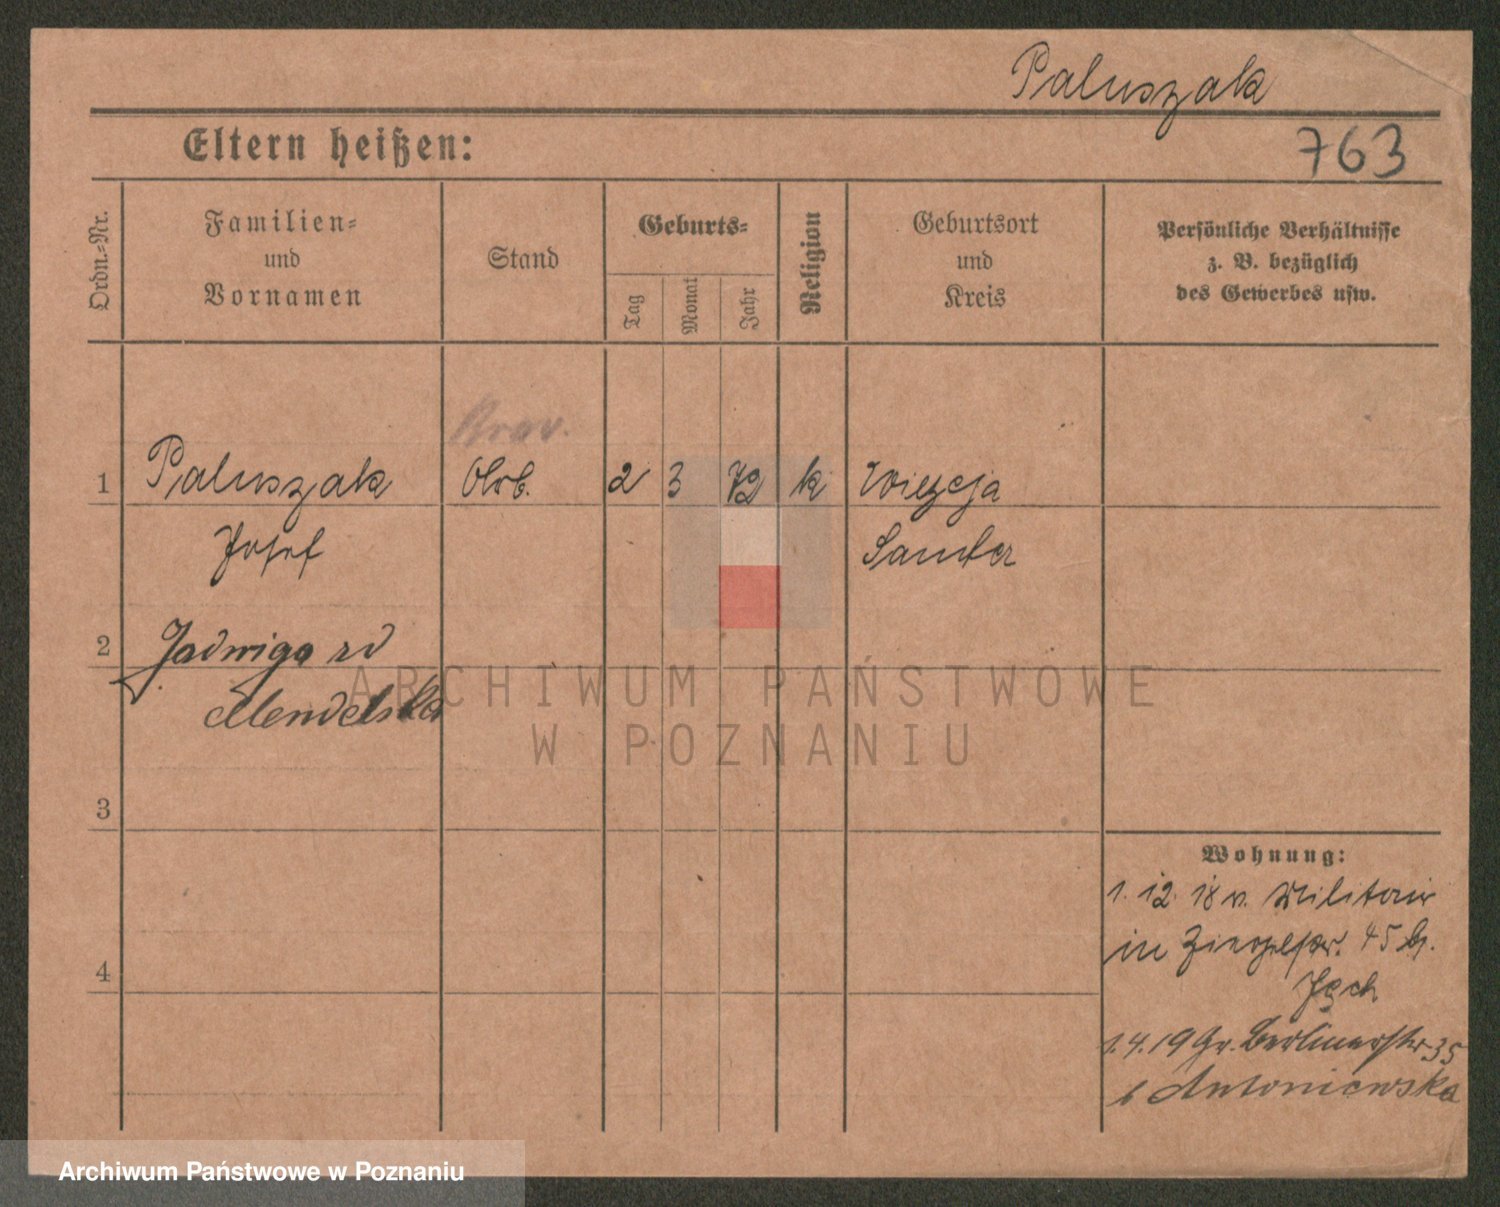 Paluszak
763
Eltern heißen:
Ordn.=Nr.
Familien=
und
Vornamen
Stand
Geburts=
Tag
Monat
Jahr
Religion
Geburtsort
und
Kreis
Persönliche Verhältnisse
z. B. bezüglich
des Gewerbes usw.
1
Paluszak
Arb.
2 3 72 k
Samter
Josef
2
Jadwiga zd
Mendelska
ARCHIWUM PAŃSTWOWE
W POZNANIU
3
4
Wohnung:
1. 12. 18 v. Militär
in 45 b.
1.4.19 Gr. Berlinerstr 35
b Antoniewska
Archiwum Państwowe w Poznaniu